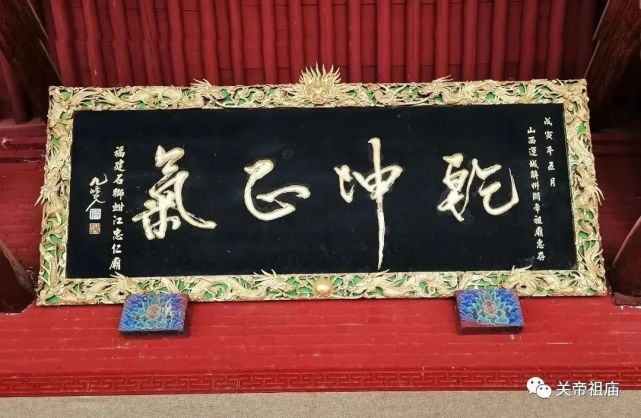 戊寅年五月
山西運城解州關帝祖廟惠存
乾坤正氣
福建石獅蚶江忠仁廟
关帝祖庙